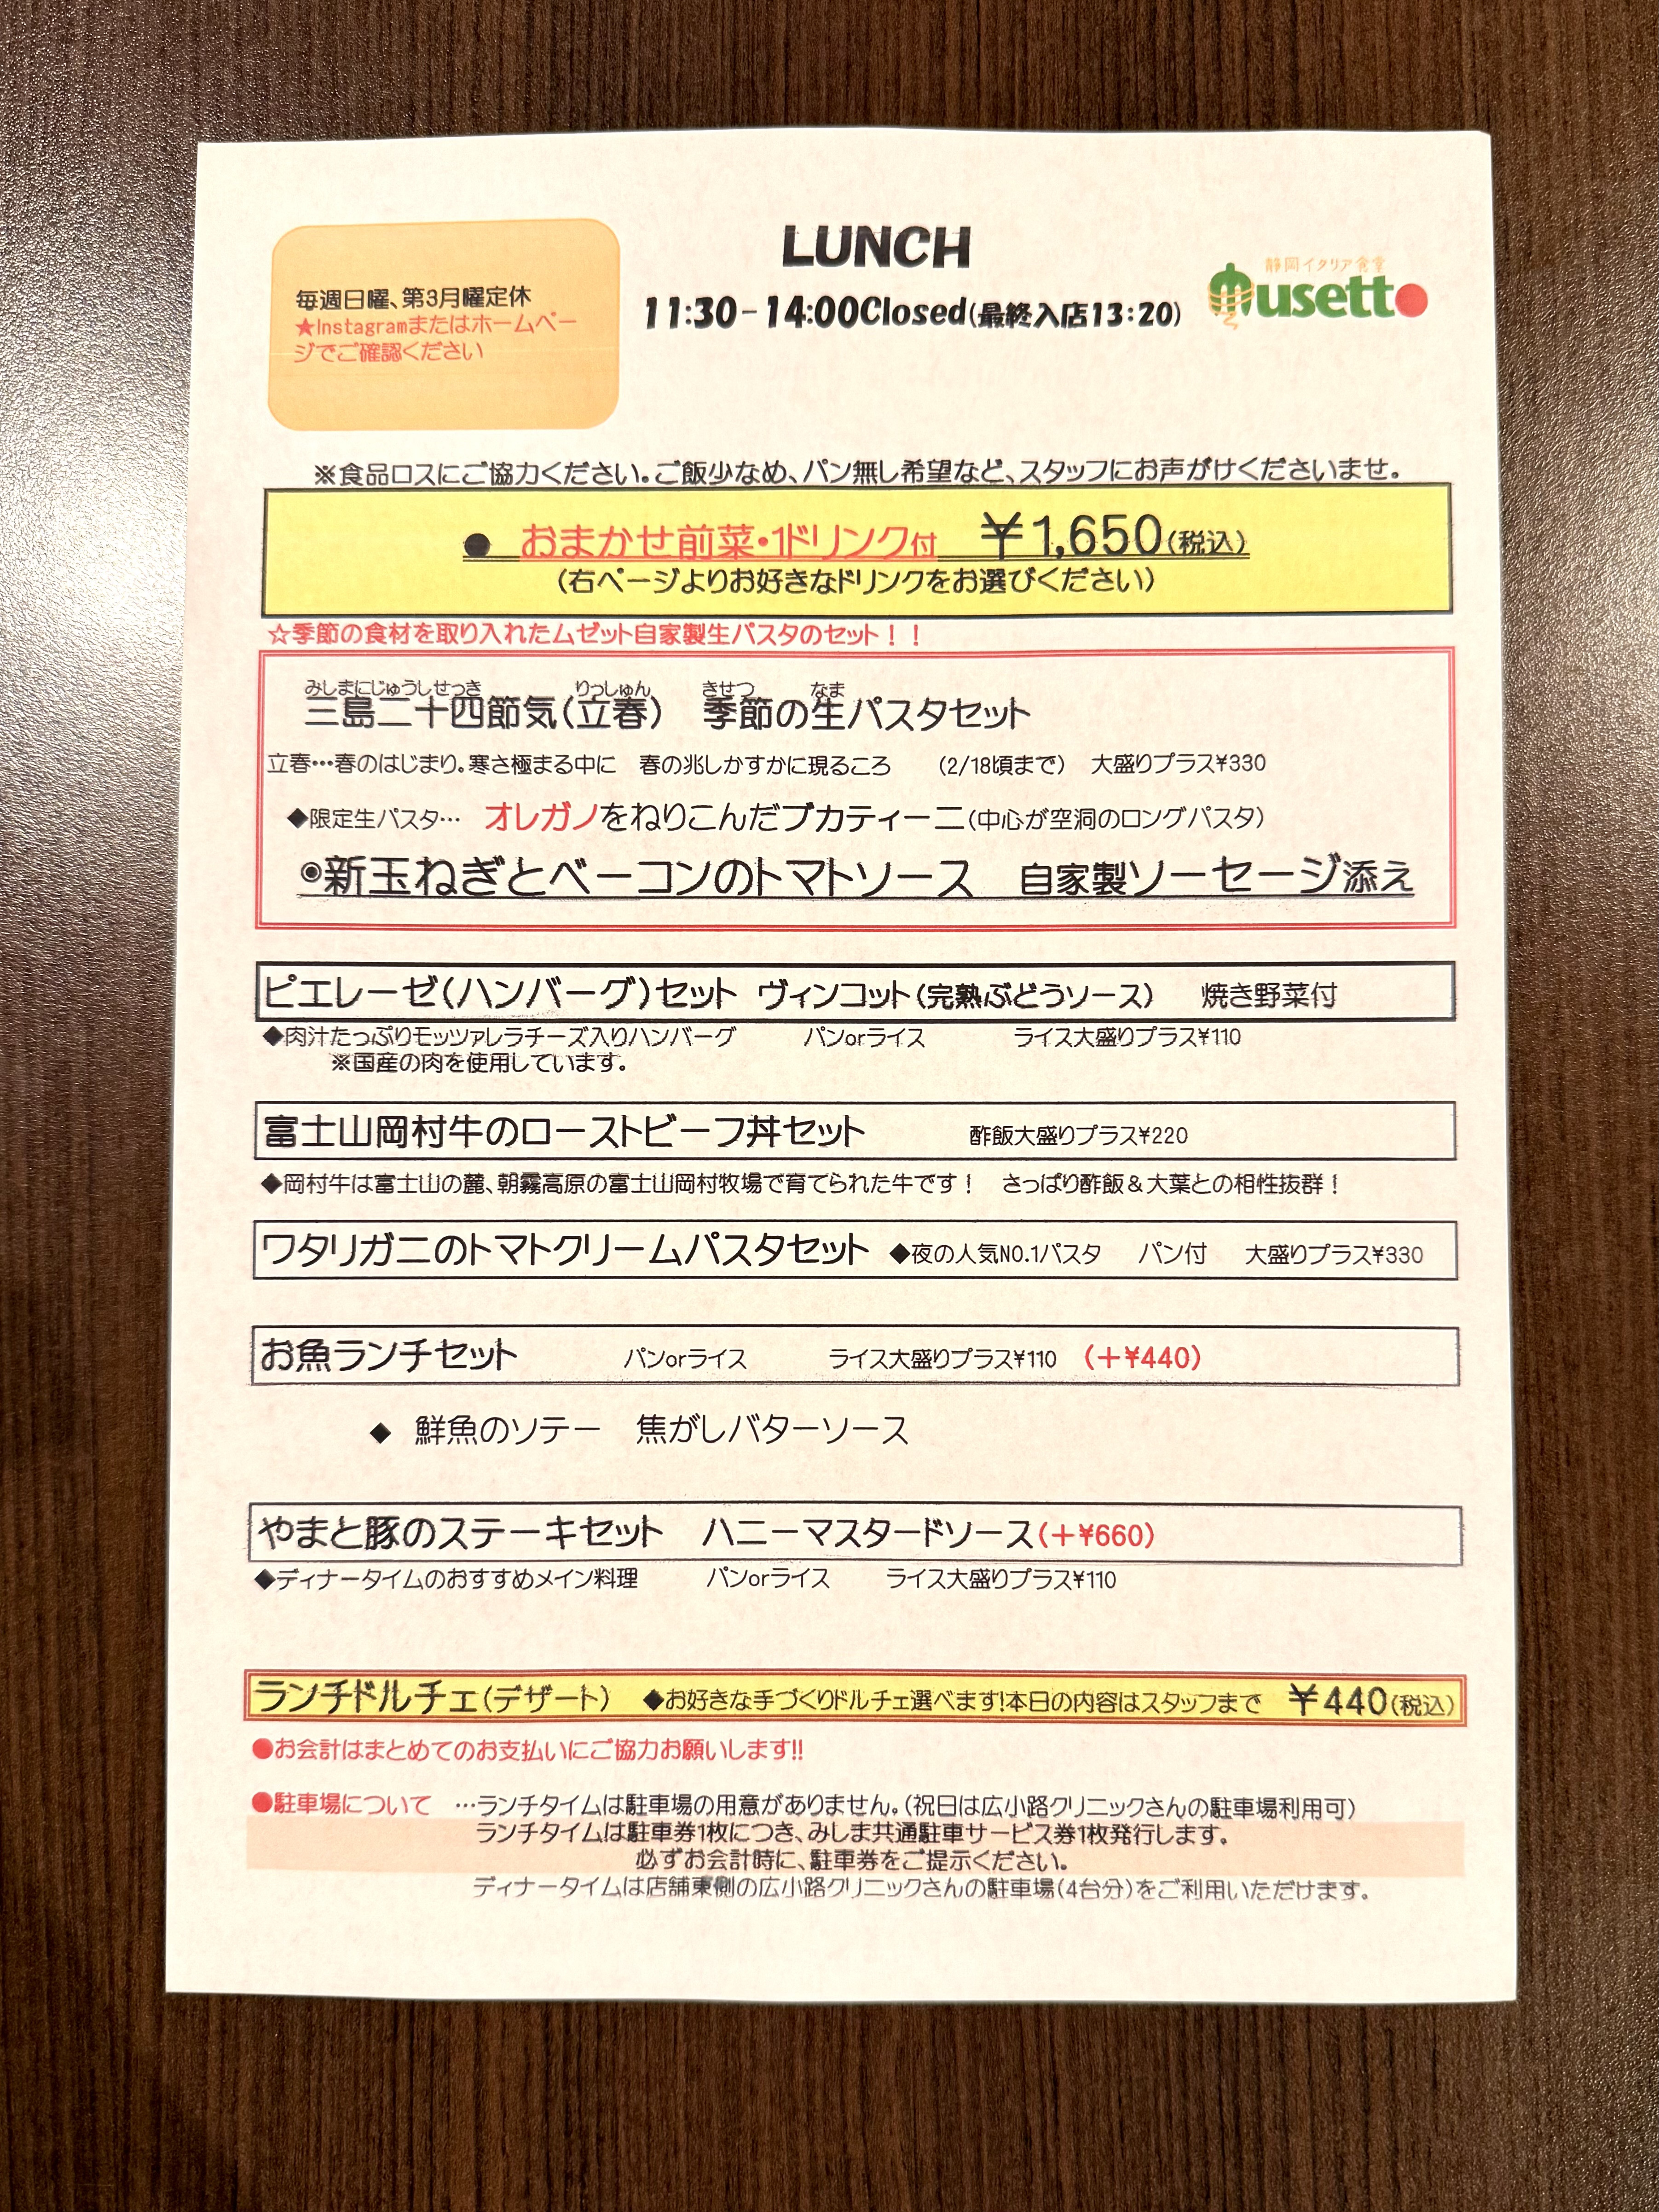 LUNCH
11:30-14:00Closed(最終入店13:20)
毎週日曜、第3月曜定休
★Instagramまたはホームペー
ジでご確認ください
静岡イタリア食堂
musetto
※食品ロスにご協力ください。ご飯少なめ、パン無し希望など、スタッフにお声がけくださいませ。
● おまかせ前菜・1ドリンク付 ￥1,650(税込)
(右ページよりお好きなドリンクをお選びください)
☆季節の食材を取り入れたムゼット自家製生パスタのセット！！
みしまにじゅうしせっき りっしゅん きせつ なま
三島二十四節気(立春) 季節の生パスタセット
立春…春のはじまり。寒さ極まる中に 春の兆しかすかに現るころ (2/18頃まで) 大盛りプラス¥330
◆限定生パスタ… オレガノをねりこんだブカティーニ(中心が空洞のロングパスタ)
◉新玉ねぎとベーコンのトマトソース 自家製ソーセージ添え
ピエレーゼ(ハンバーグ)セット ヴィンコット(完熟ぶどうソース) 焼き野菜付
◆肉汁たっぷりモッツァレラチーズ入りハンバーグ パンorライス ライス大盛りプラス¥110
※国産の肉を使用しています。
富士山岡村牛のローストビーフ丼セット 酢飯大盛りプラス¥220
◆岡村牛は富士山の麓、朝霧高原の富士山岡村牧場で育てられた牛です！ さっぱり酢飯＆大葉との相性抜群！
ワタリガニのトマトクリームパスタセット ◆夜の人気NO.1パスタ パン付 大盛りプラス¥330
お魚ランチセット パンorライス ライス大盛りプラス¥110 (＋¥440)
◆ 鮮魚のソテー 焦がしバターソース
やまと豚のステーキセット ハニーマスタードソース(＋¥660)
◆ディナータイムのおすすめメイン料理 パンorライス ライス大盛りプラス¥110
ランチドルチェ(デザート) ◆お好きな手づくりドルチェ選べます!本日の内容はスタッフまで ￥440(税込)
●お会計はまとめてのお支払いにご協力お願いします!!
●駐車場について …ランチタイムは駐車場の用意がありません。(祝日は広小路クリニックさんの駐車場利用可)
ランチタイムは駐車券1枚につき、みしま共通駐車サービス券1枚発行します。
必ずお会計時に、駐車券をご提示ください。
ディナータイムは店舗東側の広小路クリニックさんの駐車場(4台分)をご利用いただけます。